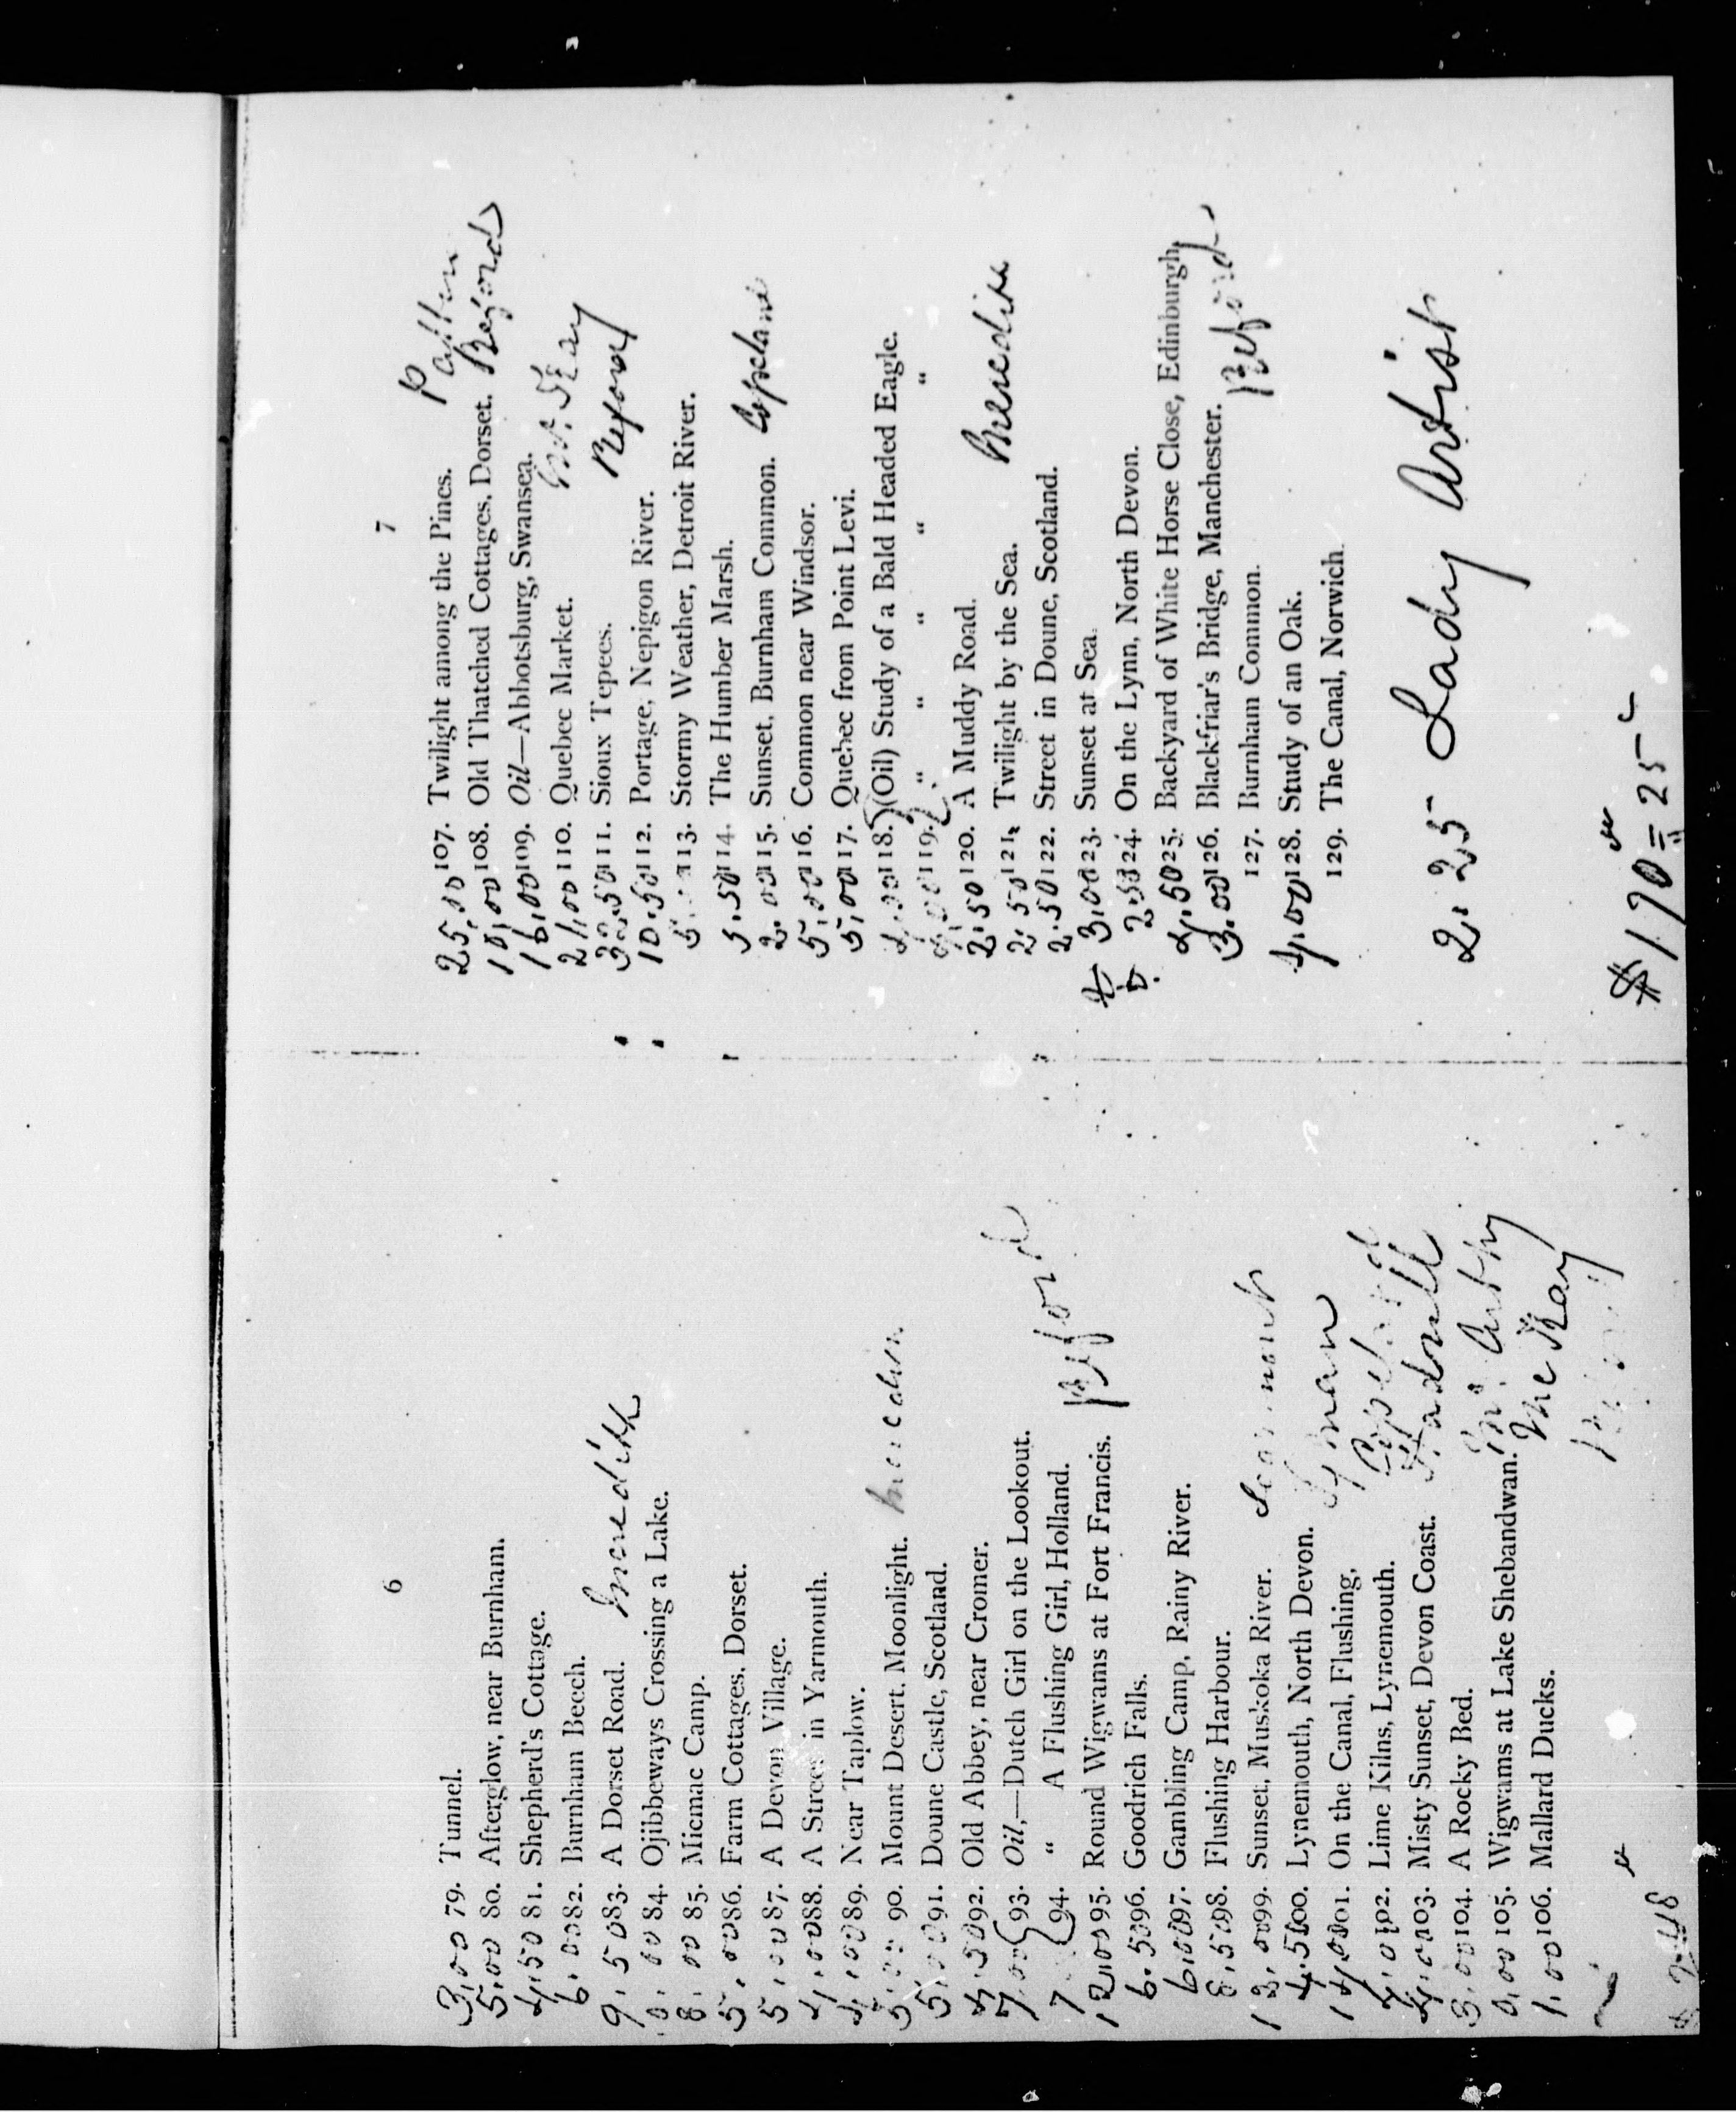 6
3.00 79. Tunnel.
5.00 80. Afterglow, near Burnham.
4.50 81. Shepherd's Cottage.
6.00 82. Burnham Beech.
9.50 83. A Dorset Road. Meredith
84. Ojibbeways Crossing a Lake.
8.00 85. Micmac Camp.
5.00 86. Farm Cottages, Dorset.
5.00 87. A Devon Village.
4.00 88. A Street in Yarmouth.
4.00 89. Near Taplow.
90. Mount Desert. Moonlight.
5.00 91. Doune Castle, Scotland.
4.50 92. Old Abbey, near Cromer.
7.00 93. Oil,—Dutch Girl on the Lookout.
7 94. " A Flushing Girl, Holland.
12.00 95. Round Wigwams at Fort Francis. Reford
6.50 96. Goodrich Falls.
6.00 97. Gambling Camp, Rainy River.
8.50 98. Flushing Harbour.
99. Sunset, Muskoka River.
4.50 100. Lynemouth, North Devon.
14.00 101. On the Canal, Flushing,
102. Lime Kilns, Lynemouth. Copeland
4.00 103. Misty Sunset, Devon Coast.
3.00 104. A Rocky Bed.
105. Wigwams at Lake Shebandwan. McKay
1.00 106. Mallard Ducks.
7
25.00 107. Twilight among the Pines. Patten
10.00 108. Old Thatched Cottages, Dorset. Reford
16.00 109. Oil—Abbotsburg, Swansea.
21.00 110. Quebec Market.
32.50 111. Sioux Tepees. Reford
10.50 112. Portage, Nepigon River.
113. Stormy Weather, Detroit River.
114. The Humber Marsh.
2.00 115. Sunset, Burnham Common. Copeland
5.00 116. Common near Windsor.
5.00 117. Quebec from Point Levi.
118. (Oil) Study of a Bald Headed Eagle.
119. " " " " "
2.50 120. A Muddy Road.
2.50 121. Twilight by the Sea. Meredith
2.50 122. Street in Doune, Scotland.
3.00 123. Sunset at Sea.
2.50 124. On the Lynn, North Devon.
4.50 125. Backyard of White Horse Close, Edinburgh,
3.00 126. Blackfriar's Bridge, Manchester.
127. Burnham Common. Reford
4.00 128. Study of an Oak.
129. The Canal, Norwich.
2.25 Lady Artist
$190 25